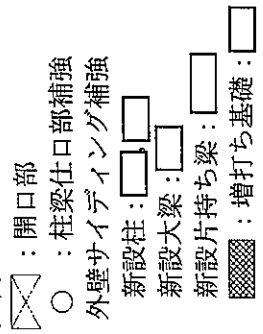 ：開口部
○：柱梁仕口部補強
外壁サイディング補強
新設柱：
新設大梁：
新設片持ち梁：
：増打ち基礎：